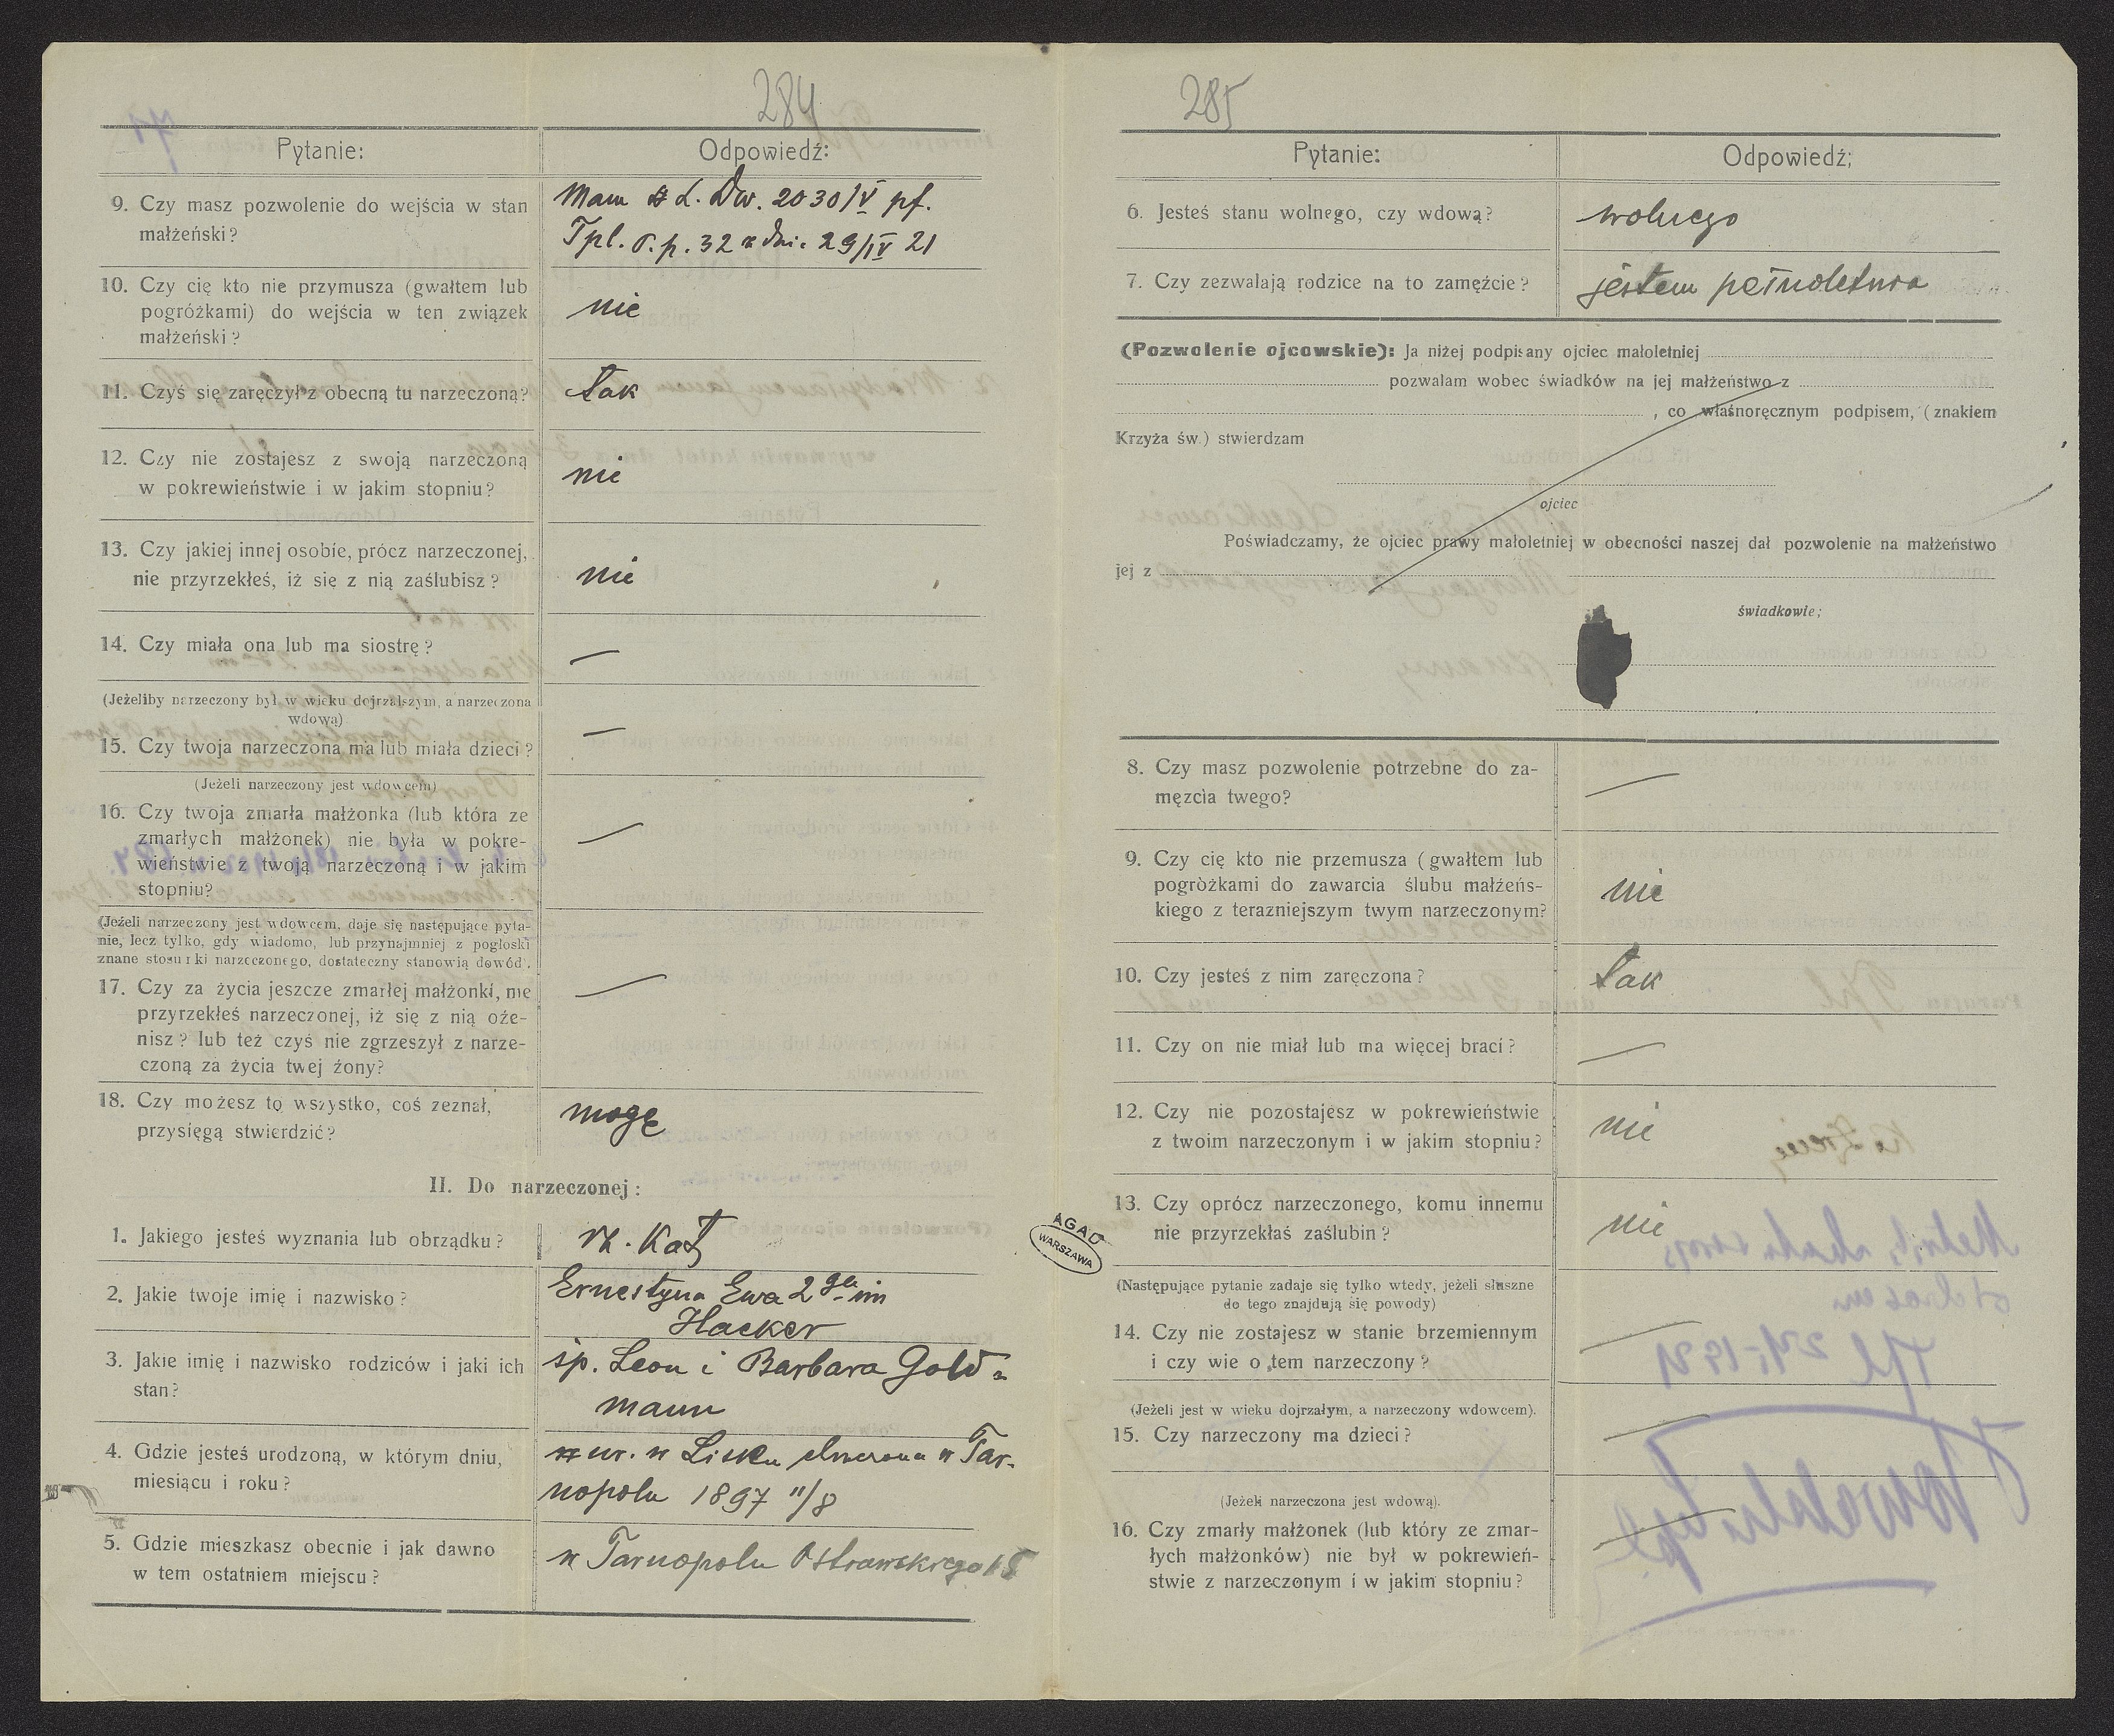 284
Pytanie:
Odpowiedź:
9. Czy masz pozwolenie do wejścia w stan
małżeński?
Mam L. Dw. 2030/V pf.
Tpl. O.p. 32 z dni. 29/IV 21
10. Czy cię kto nie przymusza (gwałtem lub
pogróżkami) do wejścia w ten związek
małżeński?
nie
11. Czyś się zaręczył z obecną tu narzeczoną?
tak
12. Czy nie zostajesz z swoją narzeczoną
w pokrewieństwie i w jakim stopniu?
nie
13. Czy jakiej innej osobie, prócz narzeczonej,
nie przyrzekłeś, iż się z nią zaślubisz?
nie
14. Czy miała ona lub ma siostrę?
—
(Jeżeliby narzeczony był w wieku dojrzalszym, a narzeczona
wdową)
15. Czy twoja narzeczona ma lub miała dzieci?
—
(Jeżeli narzeczony jest wdowcem)
16. Czy twoja zmarła małżonka (lub która ze
zmarłych małżonek) nie była w pokre-
wieństwie z twoją narzeczoną i w jakim
stopniu?
—
(Jeżeli narzeczony jest wdowcem, daje się następujące pyta-
nie, lecz tylko, gdy wiadomo, lub przynajmniej z pogłoski
znane stosunki narzeczonego, dostateczny stanowią dowód.
17. Czy za życia jeszcze zmarłej małżonki, nie
przyrzekłeś narzeczonej, iż się z nią oże-
nisz? lub też czyś nie zgrzeszył z narze-
czoną za życia twej żony?
—
18. Czy możesz to wszystko, coś zeznał,
przysięgą stwierdzić?
mogę
II. Do narzeczonej:
1. Jakiego jesteś wyznania lub obrządku?
rz. kat
2. Jakie twoje imię i nazwisko?
Ernestyna Ewa 2ga im
Hacker
3. Jakie imię i nazwisko rodziców i jaki ich
stan?
śp. Leon i Barbara Gold-
mann
4. Gdzie jesteś urodzoną, w którym dniu,
miesiącu i roku?
ur. w Lisku chrzczona w Tar-
nopolu 1897 11/8
5. Gdzie mieszkasz obecnie i jak dawno
w tem ostatniem miejscu?
w Tarnopolu Ostrowskiego 15
AGAD
WARSZAWA
285
Pytanie:
Odpowiedź;
6. Jesteś stanu wolnego, czy wdową?
wolnego
7. Czy zezwalają rodzice na to zamęźcie?
jestem pełnoletnia
(Pozwolenie ojcowskie): Ja niżej podpisany ojciec małoletniej
pozwalam wobec świadków na jej małżeństwo z
, co własnoręcznym podpisem, (znakiem
Krzyża św.) stwierdzam
ojciec
Poświadczamy, że ojciec prawy małoletniej w obecności naszej dał pozwolenie na małżeństwo
jej z
świadkowie;
8. Czy masz pozwolenie potrzebne do za-
męzcia twego?
—
9. Czy cię kto nie przemusza (gwałtem lub
pogróżkami do zawarcia ślubu małżeńs-
kiego z terazniejszym twym narzeczonym?
nie
10. Czy jesteś z nim zaręczona?
tak
11. Czy on nie miał lub ma więcej braci?
—
12. Czy nie pozostajesz w pokrewieństwie
z twoim narzeczonym i w jakim stopniu?
nie
13. Czy oprócz narzeczonego, komu innemu
nie przyrzekłaś zaślubin?
nie
(Następujące pytanie zadaje się tylko wtedy, jeżeli słuszne
do tego znajdują się powody)
14. Czy nie zostajesz w stanie brzemiennym
i czy wie o tem narzeczony?
—
(Jeżeli jest w wieku dojrzałym, a narzeczony wdowcem).
15. Czy narzeczony ma dzieci?
—
(Jeżeli narzeczona jest wdową).
16. Czy zmarły małżonek (lub który ze zmar-
łych małżonków) nie był w pokrewień-
stwie z narzeczonym i w jakim stopniu?
—